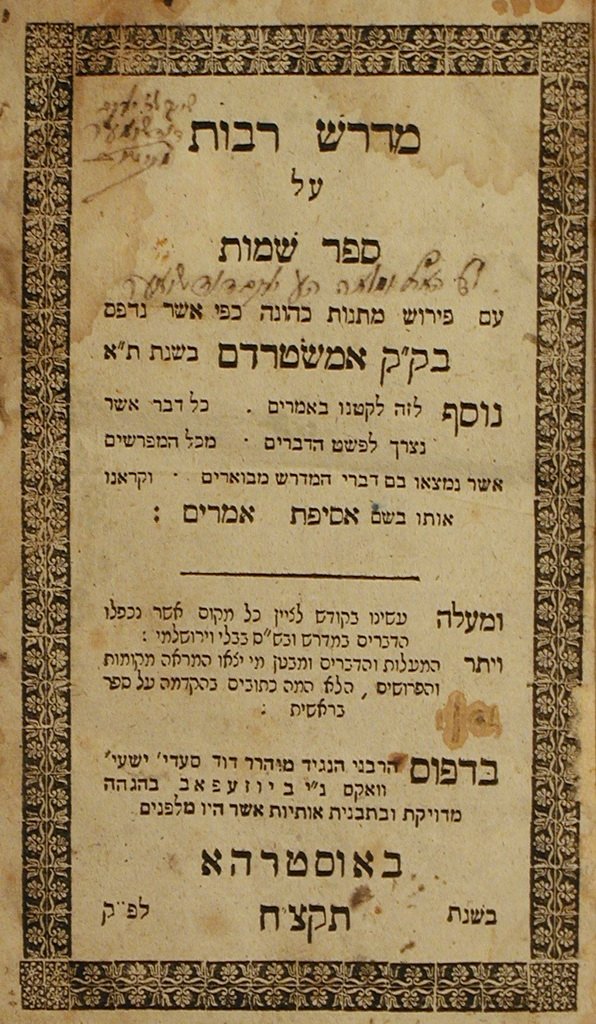 מדרש רבות
על
ספר שמות
עם פירוש מתנות כהונה כפי אשר נדפס
בק״ק אמשטרדם בשנת ת״א
נוסף לזה לקטנו באמרים . כל דבר אשר
נצרך לפשט הדברים · מכל המפרשים
אשר נמצאו בם דברי המדרש מבוארים · וקראנו
אותו בשם אסיפת אמרים :
ומעלה עשינו בקודש לציין כל מקום אשר נכפלו
הדברים במדרש ובש״ס בבלי וירושלמי :
ויתר המעלות והדברים ומבטן מי יצאו המראה מקומות
והפרושים , הלא המה כתובים בהקדמה על ספר
בראשית :
בדפוס הרבני הנגיד מוהרר דוד סעדי׳ ישעי׳
וואקס נ״י ביוזעפאב בהגהה
מדויקת ובתבנית אותיות אשר היו מלפנים
באוסטרהא
בשנת תקצ״ח לפ״ק